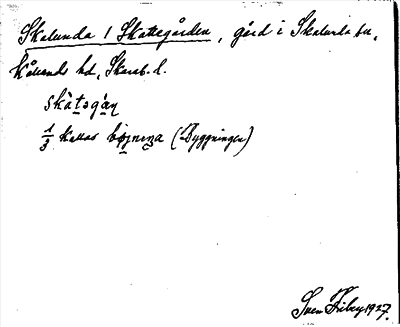 Skalunda 1 Skattegården, gård i Skalunda sn,
Kållands hd, Skarab. l.
skàtsgáṇ
1/3 kallas bỵjnịṇa (Byggningen)
Sven Friberg 1927.